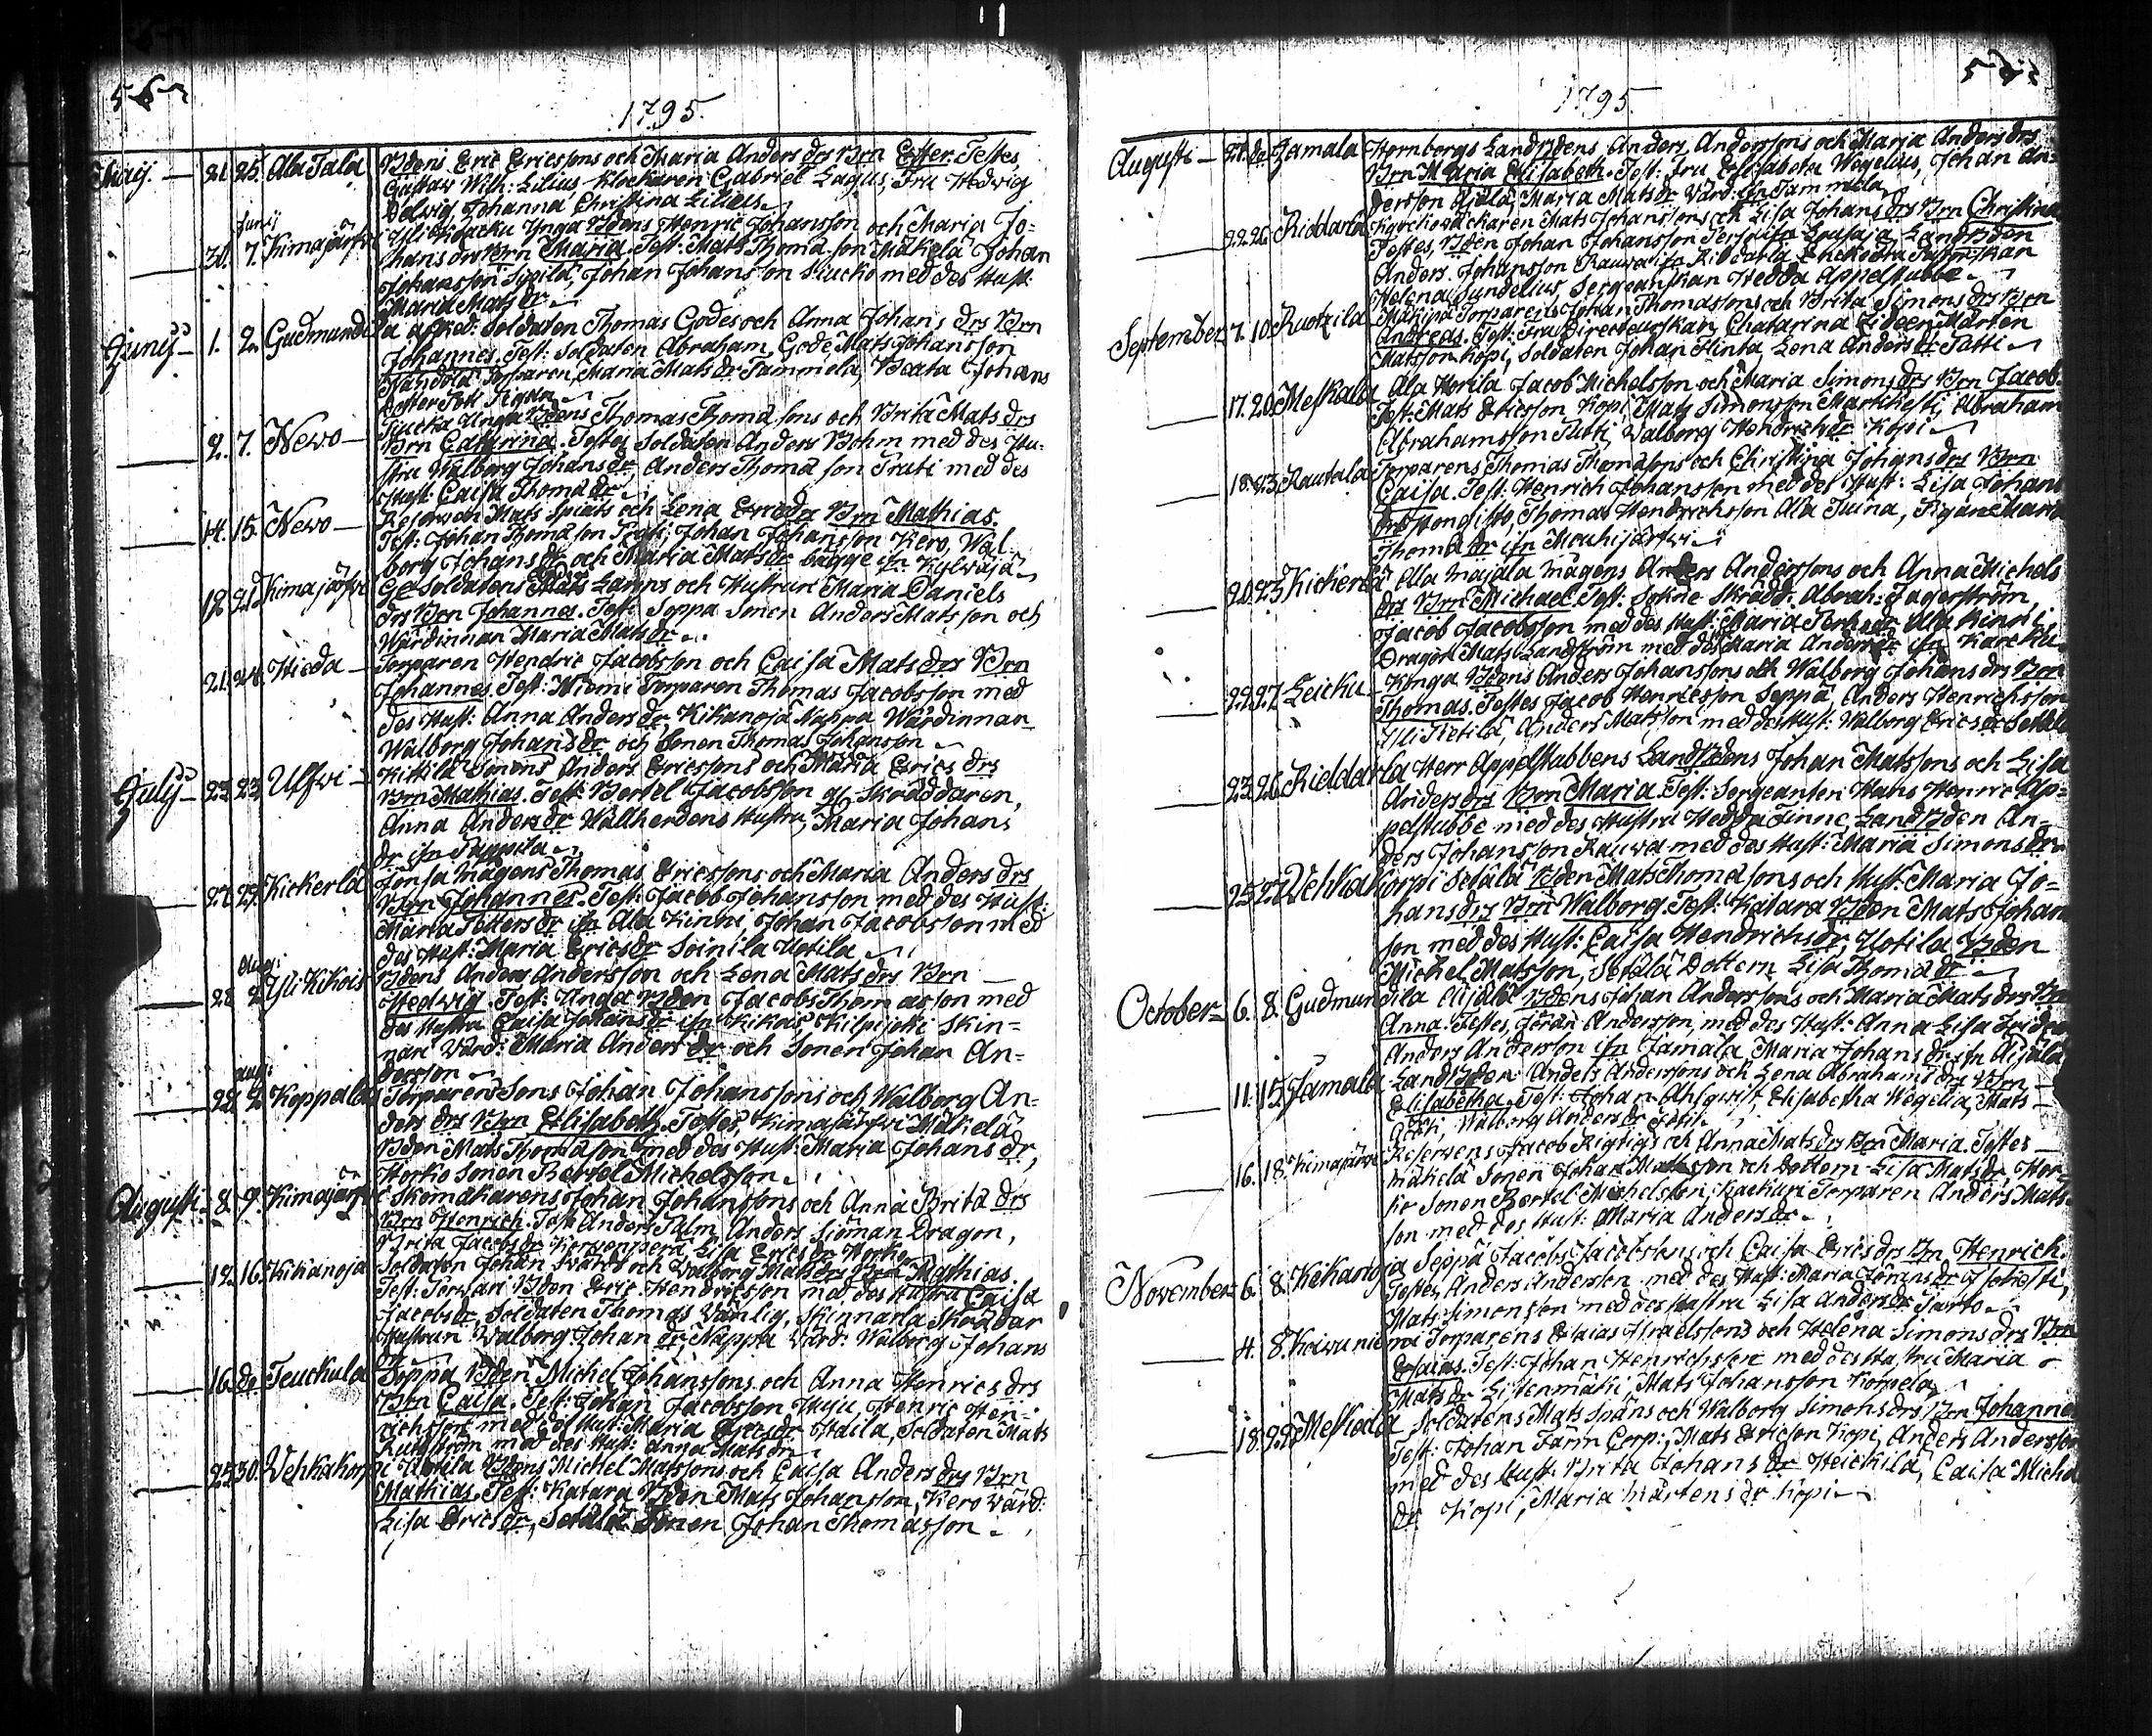 1795.
Maij. — 21. 25. Ala Tala Bdens Eric Ericssons och Maria Anders drs Brn Ester. Testes
Gustaw Wilh: Lilius Klockaren Gabriel Lagus, Fru Hedvig
Delwig, Johanna Christina Lilius
Junij
— 30. 7. Kimajärfvi Yli Kuacku Ynga Bdens Henric Johansson och Maria Jo=
hans drs Brn Maria. Test: Mats Thomasson Mäkelä Johan
Johansson Sipilä, Johan Johansson Kucko med des Hust:
Maria Mats dr
Junij — 1. 2. Gudmundila afsked: Soldaten Thomas Godes och Anna Johans drs Brn
Johannes. Test: Soldaten Abraham Gode Mats Johansson
Torparen, Maria Mats dr Tammela, Beata Johans
— 2. 7. Newo — Unga Bdens Thomas Thomassons och Brita Mats drs
Brn Catarina. Testes Soldaten Anders Bohm med des Hu=
stru Walborg Johans dr, Anders Thomasson Prati med des
Hust: Caisa Thomæ dr
— 14. 15. Newo — Reserwen Mats Spiäts och Lena Erics dr Brn Mathias.
Test: Johan Thomasson Prati, Johan Johansson Kero, Wal
borg Johans dr och Maria Mats dr bägge ifn Kylwäjä
18. 21. Kimajärfvi Soldatens Lamps och Hustrun Maria Daniels
drs Brn Johannes. Test: Seppä Sonen Anders Matsson och
Wärdinnan Maria Mats dr
21. 24. Hieda — Torparen Hendric Jacobsson och Caisa Mats drs Brn
Johannes. Test: Niemi Torparen Thomas Jacobsson med
des Hust: Anna Anders dr, Kikanoja Nappa Wärdinnan
Walborg Johans dr och Sonen Thomas Johansson
July — 23. 23. Ulfwi — Kittilä Sonens Anders Ericssons och Maria Erics drs
Brn Mathias. Test: Bertel Jacobsson gl. Skräddaren,
Anna Anders dr Wallherdens Hustru, Maria Johans
dr ifn Pappila
— 27. 29. Kickerlä Jonsa Mågens Thomas Ericssons och Maria Anders drs
Brn Johannes. Test: Jacob Johansson med des Hust:
Maria Petters dr ifn Ala Kinni, Johan Jacobsson med
des Hust: Maria Erics dr Soinila Uotila
Aug:
— 28. 2. Yli Kikois Bdens Anders Andersson och Lena Mats drs Brn —
Hedwig. Test: Unga Bden Jacobs Thomasson med
des Hustru Caisa Johans dr ifn Kikois, Kilpijoki Skin=
nari Wärd: Maria Anders dr och Sonen Johan An=
dersson
aug:
— 28. 2. Koppala Torparens Sons Johan Johanssons och Walborg An=
ders drs Brn Elisabeth. Testes, Kimajärfwi Mäkelä
Bden Mats Thomasson med des Hust: Maria Johans dr,
Horko Sonen Bertel Michelsson
Augusti — 8. 9. Kimajärfvi Skomakarens Johan Johanssons och Anna Brita drs
Brn Henrich. Test: Anders Palm, Anders Siöman Dragon,
Brita Jacobs dr Korwenperä, Lisa Erics dr Horko
— 12. 16. Kikanoja Soldaten Johan och Walborg Mats drs Brn Mathias
Test: Perwari Bden Eric Hendricsson med des Hustru Caisa
Jacobs dr, Soldaten Thomas Wänlig, Skinnarla Skräddar
Hustrun Walborg Johan dr, Nappa Wärd: Walborg Johans
dr
— 16. do Teuckula Soppa Bden Michel Johanssons och Anna Henrics drs
Brn Caisa. Test: Johan Jacobsson Henric Hen=
richsson med des Hust: Maria Erics dr Staila, Soldaten Mats
med des Hust: Anna Mats dr
— 25. 30. Wehkakorpi Uotila Bdens Michel Matssons och Caisa Anders drs Brn
Mathias. Test: Katara Bden Mats Johansson, Kero Wärd:
Lisa Erics dr, Setälä Sonen Johan Thomasson
1795
Augusti — 21. do Jamala Stornborgs Landbdens Anders Anderssons och Maria Anders drs
Brn Maria Elisabeth. Test: Fru Elisabeta Wegelius, Johan An=
dersson Äijälä, Maria Mats dr Wärd: ifn Tammela
— 22. 26. Riddarla Kyrckowäckaren Mats Johanssons och Lisa Johans drs Brn Christina
Testes, Bden Johan Johansson Landbden
Anders Johansson Rauwa ifn Riddarla Enckedra
Helena Sundelius Sergeanskan Hedda Appelstubbe
September 7. 10. Ruotzila Mäkipä Torparens Johan Thomassons och Brita Simons drs Brn
Andreas. Test: Fru Directeurskan Chatarina Mårten
Matsson Kopi, Soldaten Johan Flinta Lena Anders dr Tatti
— 17. 20. Meskala Ala Horila Jacob Michelsson och Maria Simons drs Brn Jacob.
Test: Mats Ericsson Kopi Mats Simonsson Abraham
Abrahamsson Tutti Walborg Hendrichs dr Kopi
— 18. 23. Rautala Torparens Thomas Thomassons och Christina Johans drs Brn
Caisa. Test: Henrich Johansson med des Hust: Lisa Johans
drs Thomas Hendrichsson Ala Tuina, Pigan Maria
Thomæ dr ifn Mouhijärfwi
— 20. 23. Kickerlä Ella Majala Mågens Anders Anderssons och Anna Michels
drs Brn Michael. Test: Sokne Skrädd: Abrah: Fagerström,
Jacob Jacobsson med des Hust: Maria Ala Kinni,
Dragon Mats Landström med des Maria Anders dr ifn Karcku
— 22. 27. Leicku Könga Bdens Anders Johanssons och Walborg Johans drs Brn
Thomas. Testes Jacob Henricsson Seppä, Anders Henrichsson
Yli Pietilä, Anders Matsson med des Hust: Walborg Erics dr
— 23. 26. Rieddarla Herr Appelstubbens Landbdens Johan Matssons och Lisa
Anders drs Brn Maria. Test: Sergeanten Hans Henric Ap=
pelstubbe med des Hustru Hedda Finne, Landbden An=
ders Johansson Rauwa med des Hust: Maria Simons dr
— 25. 27. Wehkakorpi Setälä Bden Mats Thomassons och Hust: Maria Jo=
hans drs Brn Walborg. Test: Katara Bden Mats Johans
son med des Hust: Caisa Hendrichs dr, Uotila Bden
Michel Matsson, Setälä Dottern Lisa Thomæ dr
October — 6. 8. Gudmundila Äijälä Bdens Johan Anderssons och Maria Mats drs Brn
Anna. Testes, Jöran Andersson med des Hust: Anna Lisa
Anders Andersson ifn Jamala, Maria Johans dr ifn Äijälä
— 11. 15. Jamala Landbden Anders Anderssons och Lena Abrahams drs Brn —
Elisabetha. Test: Johan Ahlqwist, Elisabetha Wegelia, Mats
Walborg Anders dr
— 16. 18. Kimajärvi Reservens Jacob Rigtigs och Anna Mats drs Brn Maria. Testes —
Mäkelä Sonen Johan Matsson och Dottern Lisa Mats dr, Hor
ko Sonen Bertel Michelsson, Torparen Anders Mats
son med des Hust: Maria Anders dr
November 6. 8. Kikanoja Seppä Jacobs Jacobssons och Caisa Erics drs Brn Henrich.
Testes, Anders Andersson med des Hust: Maria Jörans dr
Mats Simonsson med des Hustru Lisa Anders dr
— 4. 8. Koiwuniemi Torparens Esaias Israelssons och Helena Simons drs Brn
Esaias. Test: Johan Henrichsson med des Hustru Maria
Mats dr Mats Johansson Korpela
— 18. 22. Meskala Soldatens Mats Späns och Walborg Simons drs Brn Johannes
Test: Johan Färm Corp:, Mats Ericson Kopi, Anders Andersson
med des Hust: Brita Johans dr Heickilä, Caisa Michels
dr Kopi, Maria Mårtens dr Kopi